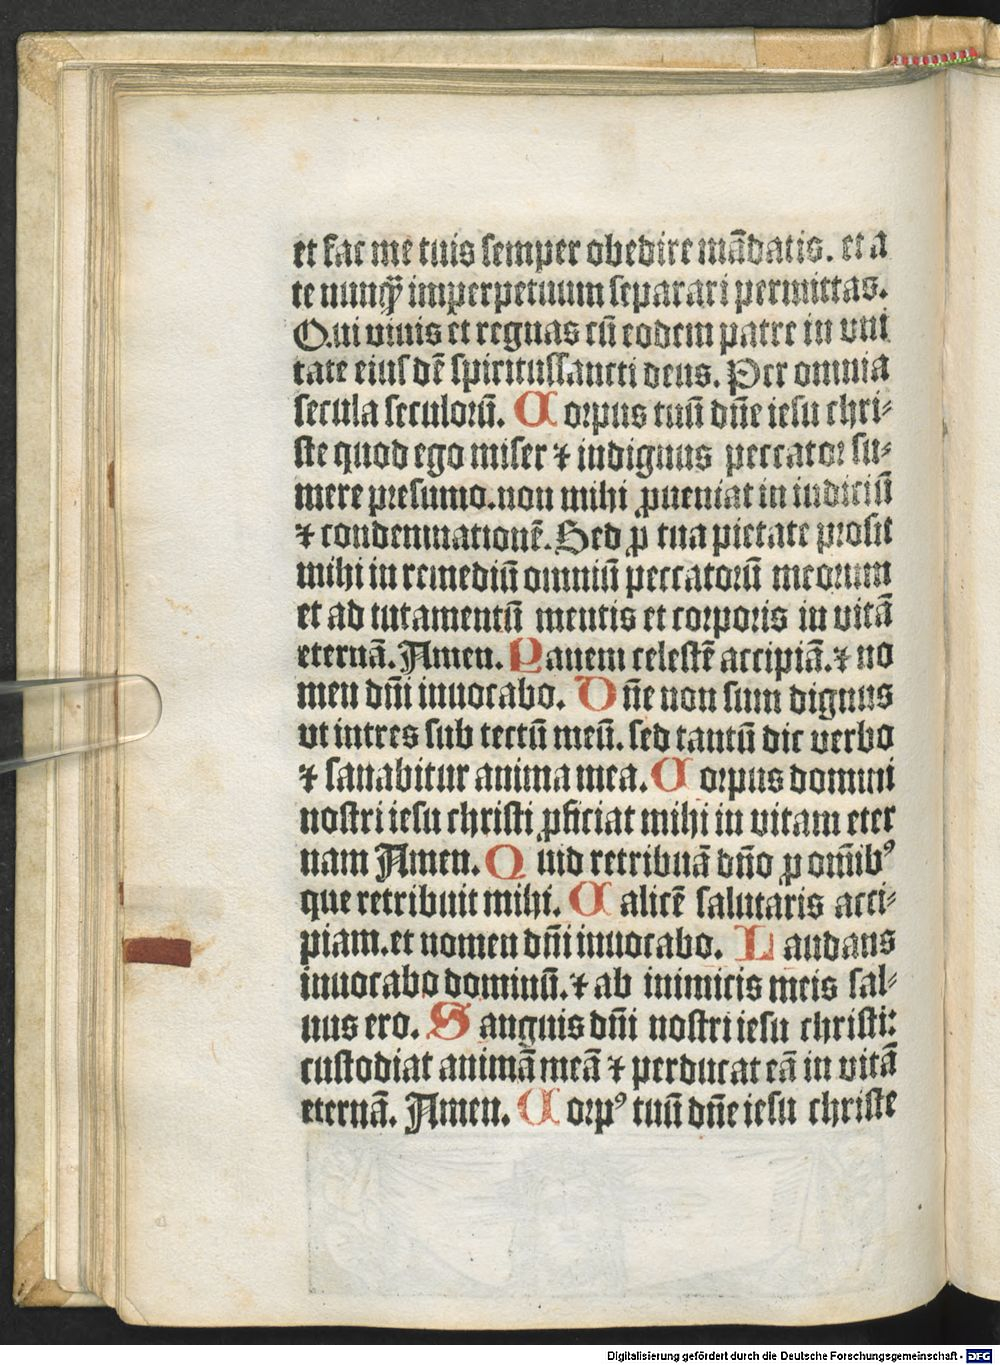 et fac me tuis semper obedire mādatis. et a
te nunq̄ꝫ imperpetuum separari permittas.
Qui viuis et regnas cū eodem patre in vni
tate eiuſ dē ſpirituſſancti deus. Per omnia
secula seculoꝛū. Coꝛpus tuū dn̄e iesu chri⸗
ſte quod ego miser ⁊ indignus peccatoꝛ ſu⸗
mere pꝛesumo. non mihi ꝓueniat in iudiciū
⁊ condemnationē. Sed ꝓ tua pietate pꝛoſit
mihi in remediū omniū peccatoꝛū meoꝛum
et ad tutamentū mentis et coꝛpoꝛis in vitā
eternā. Amen. Panem celeſtē accipiā. ⁊ no
men dn̄i inuocabo. Dn̄e non ſum dignus
vt intres ſub tectū meū. ſed tantū dic verbo
⁊ ſanabitur anima mea. Coꝛpus domini
noſtri ieſu chriſti ꝓficiat mihi in vitam eter
nam Amen. Quid retribuā dn̄o ꝓ om̄ibꝰ
que retribuit mihi. Calicē ſalutaris acci⸗
piam. et nomen dn̄i inuocabo. Laudans
inuocabo dominū. ⁊ ab inimicis meis ſal⸗
uus ero. Sanguis dn̄i noſtri ieſu chriſti:
cuſtodiat animā meā ⁊ perducat eā in vitā
eternā. Amen. Coꝛpꝰ tuū dn̄e ieſu chriſte
Digitalisierung gefördert durch die Deutsche Forschungsgemeinschaft - DFG